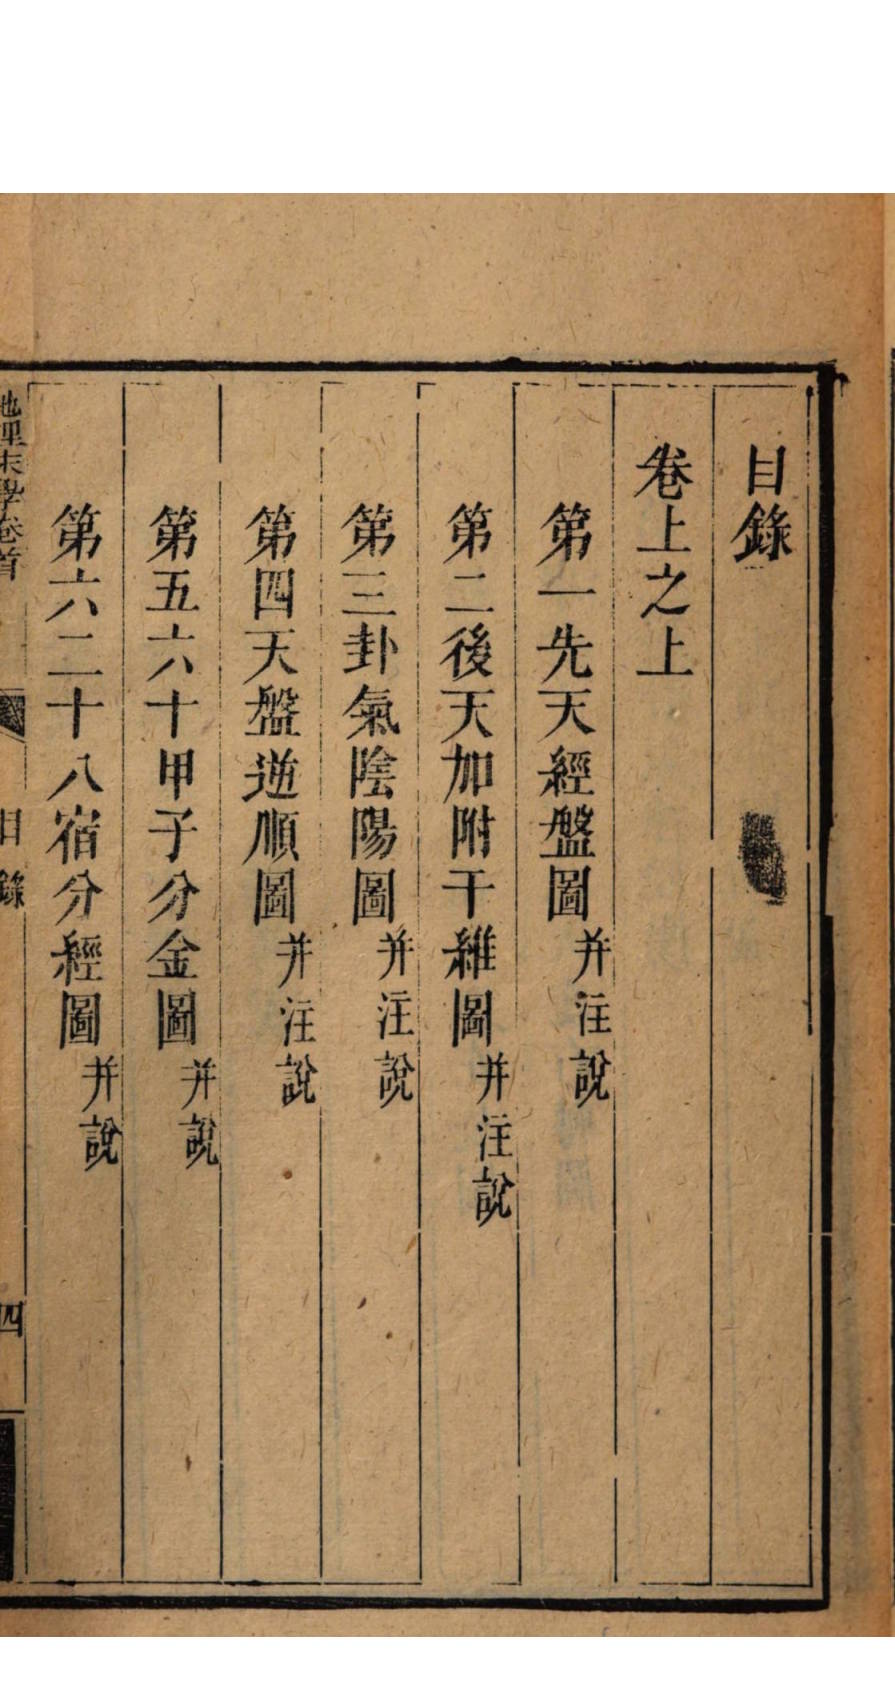 目錄
卷上之上
第一先天經盤圖并注說
第二後天加附干維圖并注說
第三卦氣陰陽圖并注說
第四天盤逆順圖并注說
第五六十甲子分金圖并說
第六二十八宿分經圖并說
地理末學卷首
目錄
四